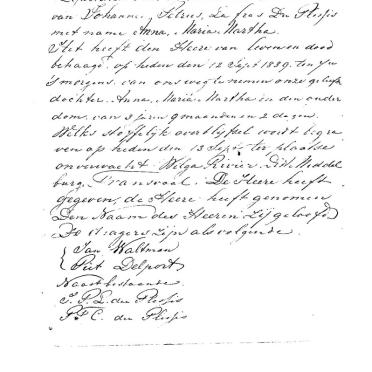 van Johannes Petrus, La fras Du Plessis
met name Anna, Maria Martha.
Het heeft den Heere van leven en dood
behaagd, op heden den 12 Sept 1889. ten 7 u
's morgens, van ons weg te nemen onze geliefde
dochter. Anna, Maria Martha in den ouder
dom van 3 jaren 9 maanden en 2 dagen.
Welks stoffelijk overblyfsel wordt begra
ven op heden den 13 Sept. ter plaatse
onverwacht. Wilge Rivier. Dist. Middel
burg. Transvaal. De Heere heeft
gegeven, de Heere heeft genomen
Den Naam des Heeren Zij geloofd
De dragers zijn als volgende.
Jan Waltman
Piet Delport
Naastbestaande.
J. P. L. du Plessis
P. F. C. du Plessis